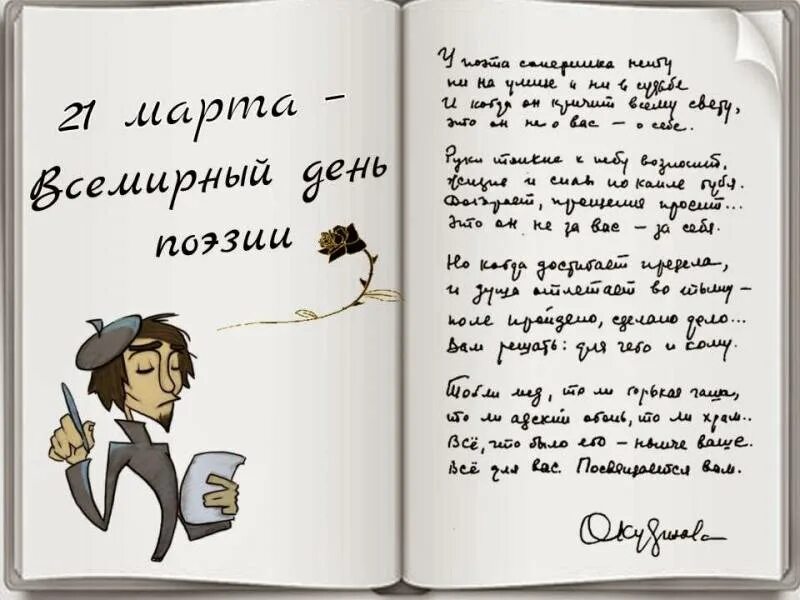 21 марта -
Всемирный день
поэзии
У поэта соперника нету
ни на улице и ни в судьбе
И когда он кричит всему свету,
это он не о вас – о себе.
Руки тонкие к небу возносит,
жизнь и силы по капле губя.
Догорает, прощения просит...
Это он не за вас – за себя.
Но когда достигает предела,
и душа отлетает во тьму –
поле пройдено, сделано дело...
Вам решать: для чего и кому.
То ли мед, то ли горькая чаша,
то ли адский огонь, то ли храм..
Всё, что было его – нынче ваше.
Всё для вас. Посвящается вам.
Окуджава